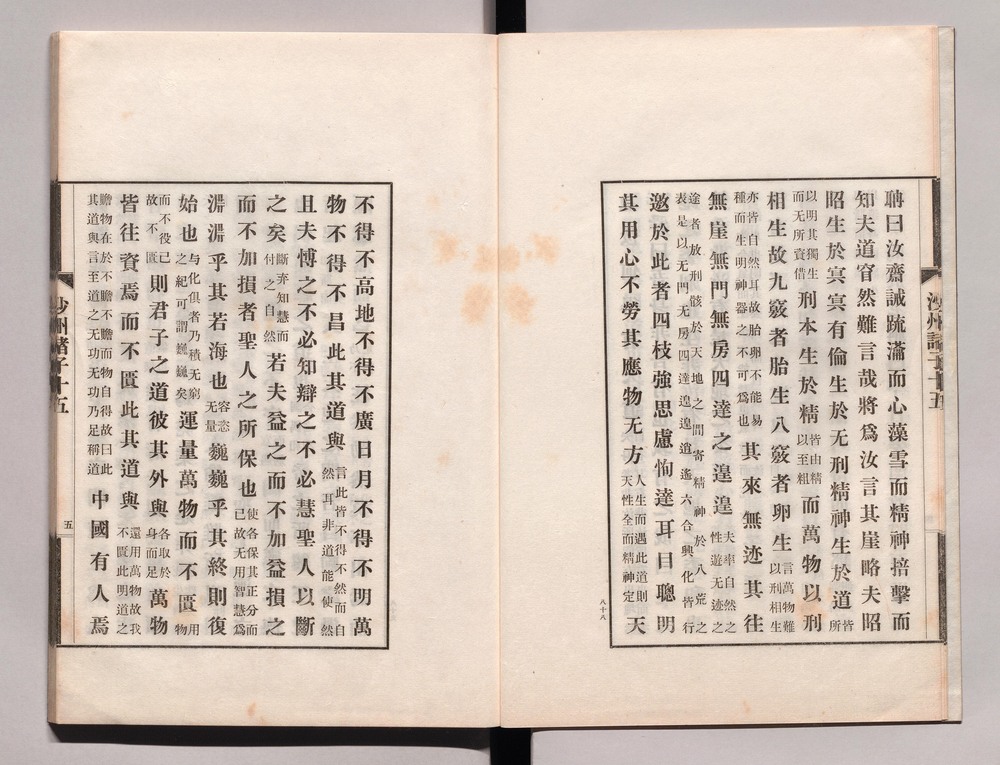 聃曰汝齋誡疏瀹而心藻雪而精神掊擊而
知夫道窅然難言哉將爲汝言其崖略夫昭
昭生於冥冥有倫生於无刑精神生於道皆所
以明其獨生而无所資借刑本生於精皆由精以至粗而萬物以刑
相生故九竅者胎生八竅者卵生言萬物難以刑相生
亦皆自然耳故胎卵不能易種而生明神器之不可爲也其來無迹其往
無崖無門無房四達之遑遑夫率自然之性遊无迹之
途者放刑骸於天地之間寄精神於八荒之表是以无門无房四達遑遑逍遙六合與化皆行
邀於此者四枝強思慮恂達耳目聰明
其用心不勞其應物无方人生而遇此道則天性全而精神定天
不得不高地不得不廣日月不得不明萬
物不得不昌此其道與言此皆不得不然而自然耳非道能使然
且夫博之不必知辯之不必慧聖人以斷
之矣斷弃知慧而付之自然若夫益之而不加益損之
而不加損者聖人之所保也使各保其正分而已故无用智慧爲
淵淵乎其若海也容恣无量巍巍乎其終則復
始也与化俱者乃積无窮之紀可謂巍巍矣運量萬物而不匱用物
而不役己故不匱則君子之道彼其外與各取於身而足萬物
皆往資焉而不匱此其道與還用萬物故我不匱此明道之
贍物在於不贍不贍而物自得故曰此其道與言至道之无功无功乃足稱道中國有人焉
沙州諸子十五
沙州諸子十五
五
八十八